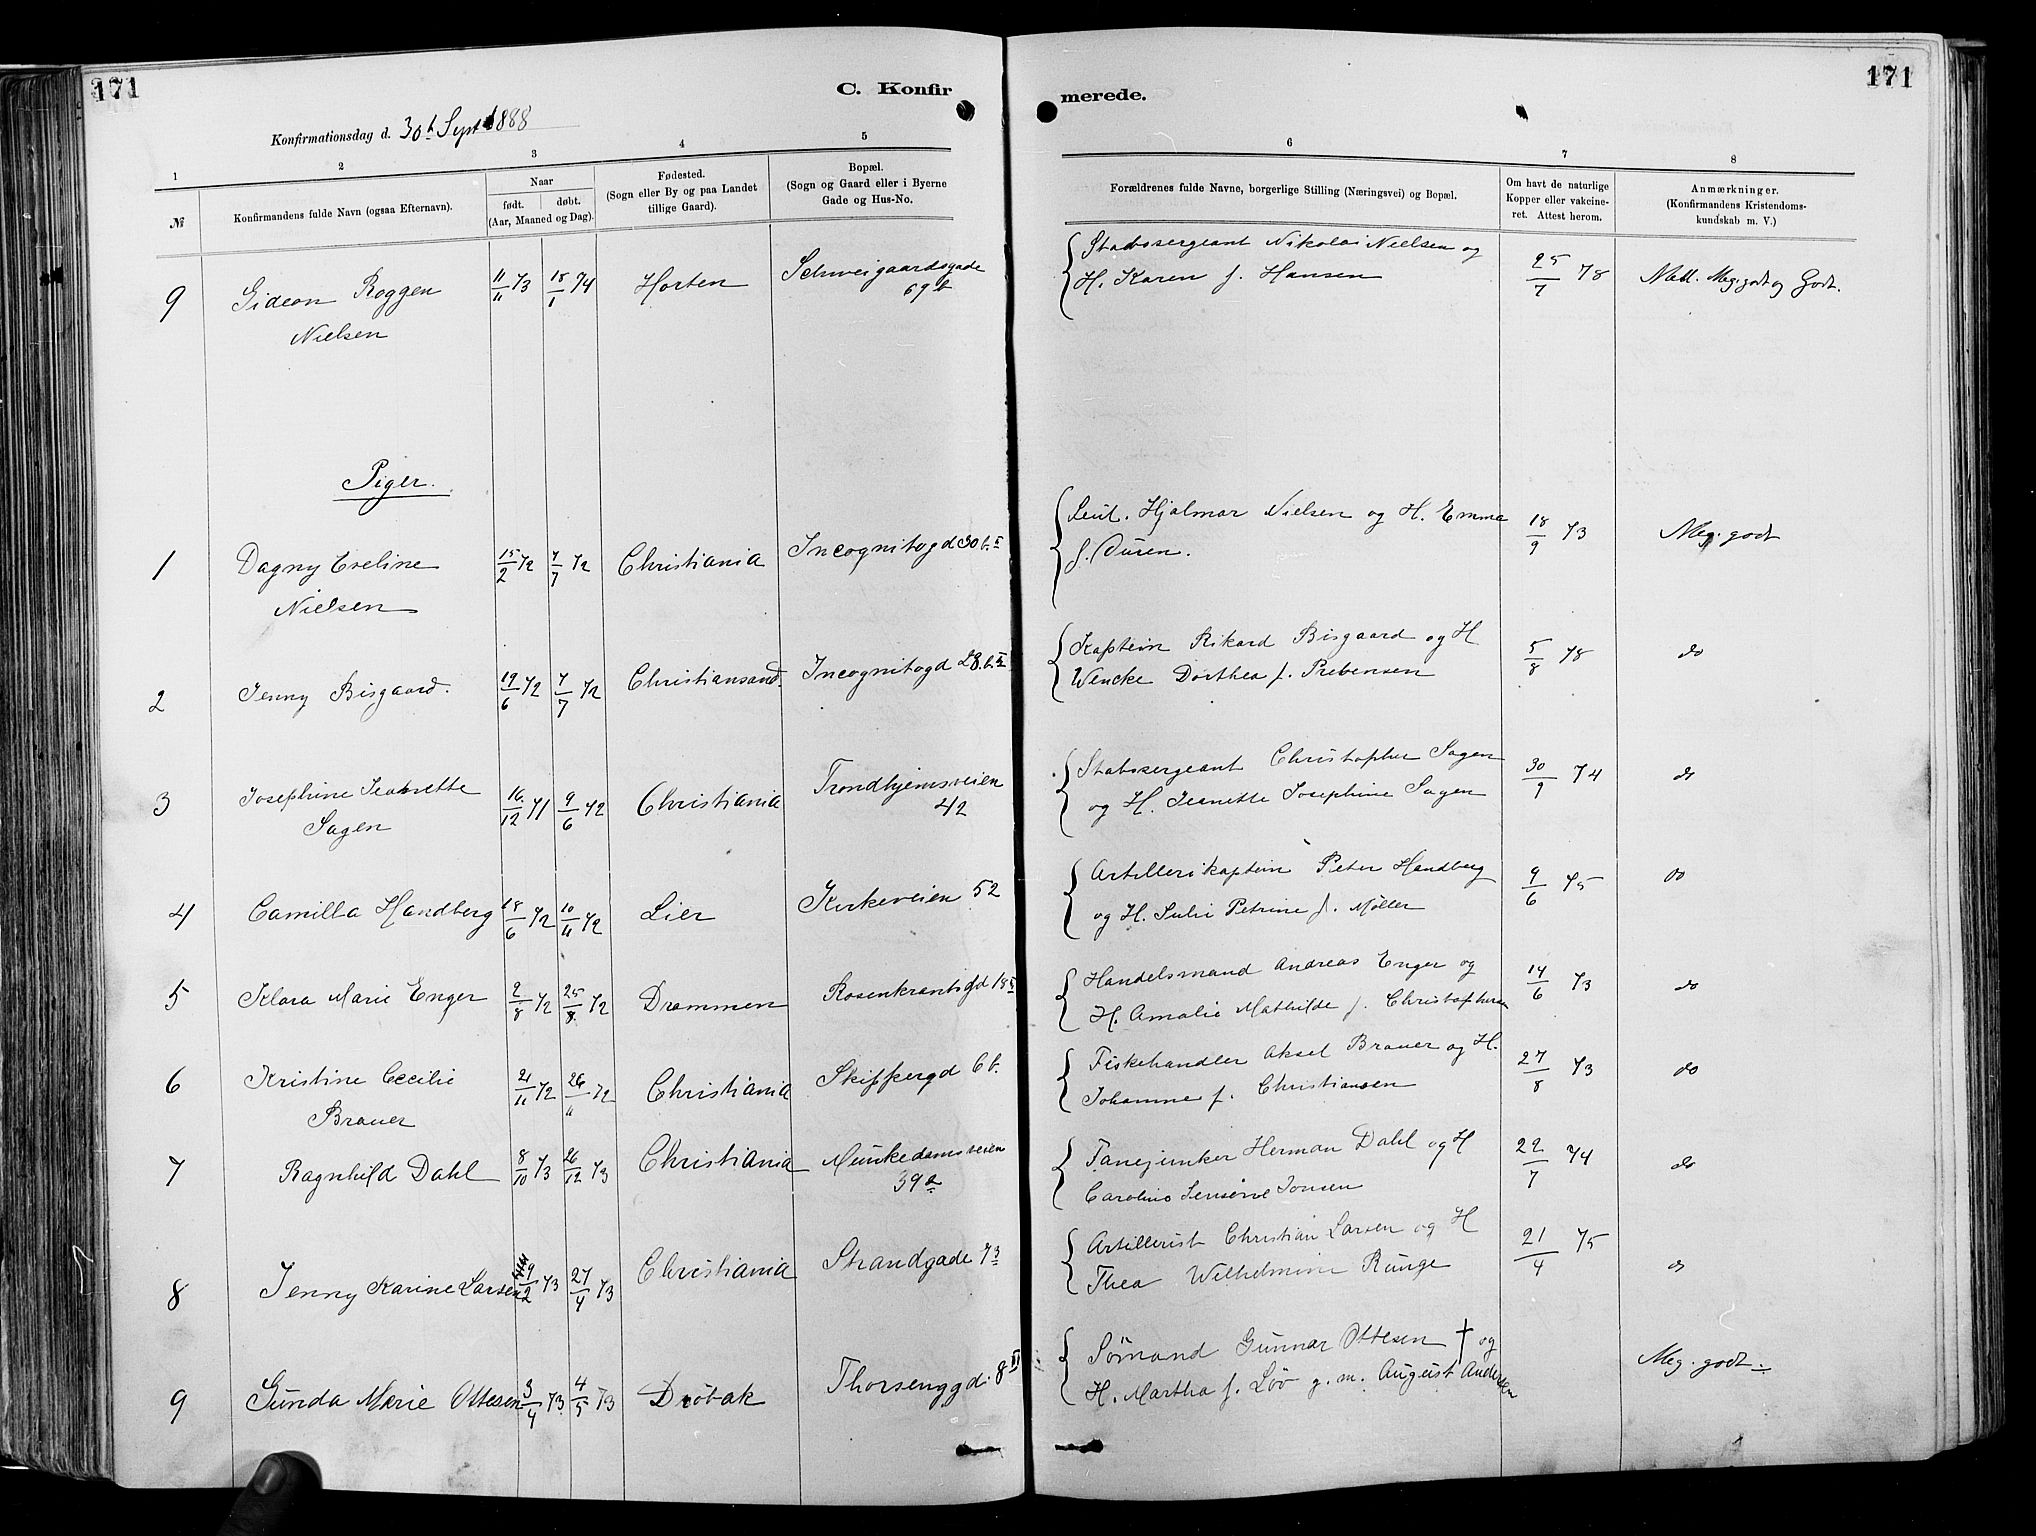 171
C. Konfir
merede.
171
Konfirmationsdag d. 30te Sept 1888
1 2 3 4 5 6 7 8
№ Konfirmandens fulde Navn (ogsaa Efternavn). Naar født. døbt. (Aar, Maaned og Dag). Fødested. (Sogn eller By og paa Landet tillige Gaard). Bopæl. (Sogn og Gaard eller i Byerne Gade og Hus-No. Forældrenes fulde Navne, borgerlige Stilling (Næringsvei) og Bopæl. Om havt de naturlige Kopper eller vakcineret. Attest herom. Anmærkninger. (Konfirmandens Kristendomskundskab m. V.)
9 Gideon Roggen 11/11 73 18/1 74 Horten Schweigaardsgade Stabssergeant Nikolai Nielsen og 25/7 78 Natl. Meg. godt og Godt.
Nielsen 67 b H. Karen f. Hansen
Piger.
1 Dagny Eveline 15/2 72 7/7 72 Christiania Incognitogd 30 b. II Leut. Hjalmar Nielsen og H. Emma 18/9 73 Meg. godt
Nielsen f. Duren.
2 Jenny Bisgaard. 19/6 72 7/7 72 Christiansand. Incognitogd 28. b. II Kaptein Rikard Bisgaard og H 5/8 78 do
Wencke Dorthea f. Prebensen
3 Josephine Jeanette 16/12 71 9/6 72 Christiania Trondhjemsveien Stabssergeant Christopher Sagen 30/9 74 do
Sagen 42 og H. Jeanette Josephine Sagen
4 Camilla Handberg 18/6 72 10/11 72 Lier Kirkeveien 52 Artillerikaptein Peter Handberg 9/6 75 do
og H. Julie Petrine f. Møller
5 Klara Marie Enger 2/8 72 25/8 72 Drammen Rosenkrantsgd 18 II Handelsmand Andreas Enger og 14/6 73 do
H. Amalie Mathilde f. Christophersen
6 Kristine Cecilie 21/11 72 26/11 72 Christiania Skippergd 6 b. Fiskehandler Aksel Brauer og H. 27/8 73 do
Brauer Johanne f. Christiansen
7 Ragnhild Dahl 8/10 73 26/12 73 Christiania Munkedamsveien Fanejunker Herman Dahl og H 22/7 74 do
39 a Caroline Jensine Jonsen
8 Jenny Karine Larsen 9/2 73 27/4 73 Christiania Strandgade 73 Artillerist Christian Larsen og H 21/4 75 do
Thea Wilhelmine Runge
9 Gunda Marie Ottesen 3/4 73. 4/5 73 Drøbak Thorsenggd. 8 II Sømand Gunnar Ottesen † og Meg. godt
H. Martha f. Løv g. m. August Andersen